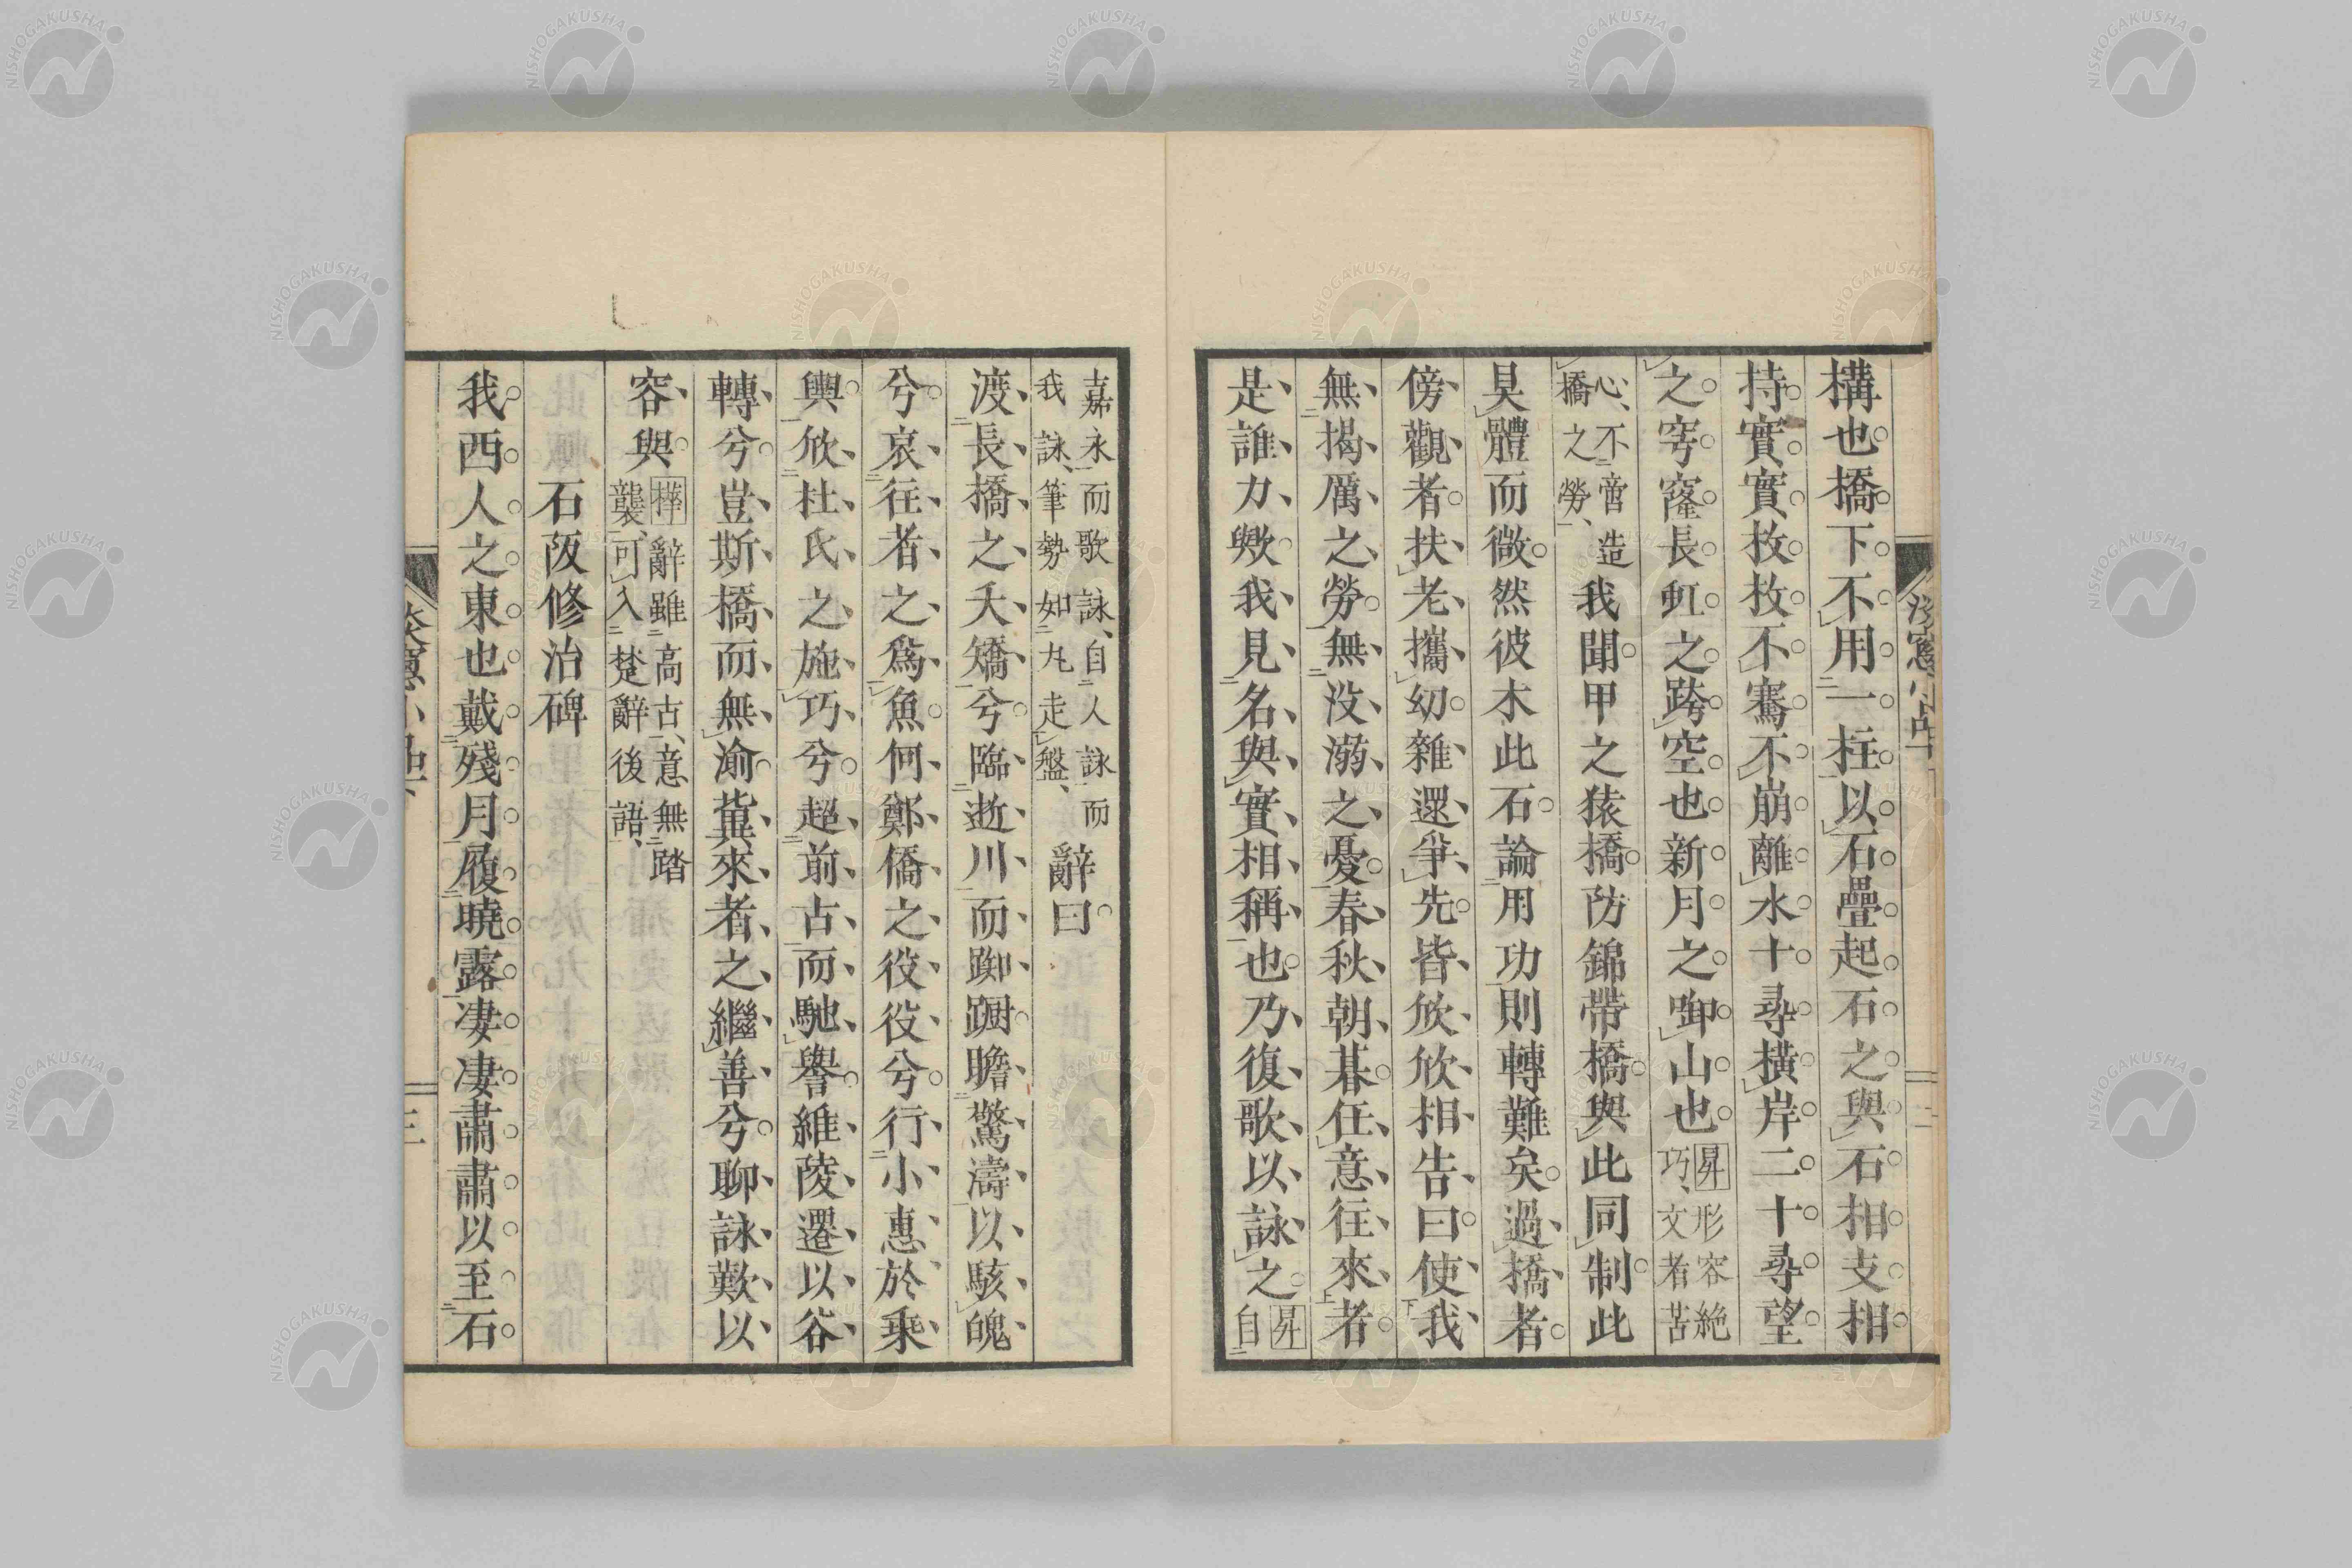 構也橋下不用一拄以石疊起石之與石相支相
持實實枚枚不騫不崩離水十尋橫岸二十尋望
之穹窿長虹之跨空也新月之啣山也昇形容絶
巧文者苦
心不啻造
橋之勞我聞甲之猿橋防錦帶橋與此同制此
昊體而微然彼木此石論用功則轉難矣過橋者
傍觀者扶老攜幼雜還爭先皆欣欣相告曰使我
無揭厲之勞無没溺之憂春秋朝暮任意往來者
是誰力歟我見名與實相稱也乃復歌以詠之昇
自
嘉永而歌詠自人詠而
我詠筆勢如丸走盤辭曰
渡長橋之夭矯兮臨逝川而踟蹰瞻驚濤以駭魄
兮哀往者之爲魚何鄭僑之役役兮行小惠於乗
輿欣杜氏之施巧兮超前古而馳譽維陵遷以谷
轉兮豈斯橋而無渝冀來者之繼善兮聊詠歎以
容與樺辭雖高古意無踏
襲可入楚辭後語
石阪修治碑
我西人之東也戴殘月履曉露凄凄肅肅以至石
三
NISHOGAKUSHA